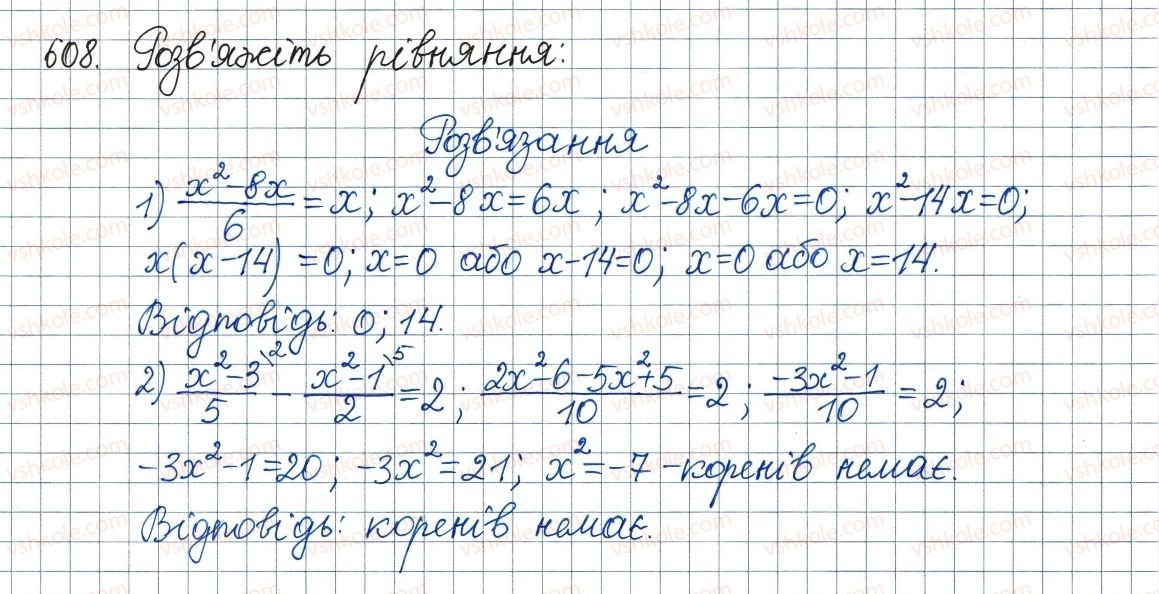 608. Розв'яжіть рівняння:
Розв'язання
1) (x²-8x)/6 = x; x²-8x=6x; x²-8x-6x=0; x²-14x=0;
x(x-14)=0; x=0 або x-14=0; x=0 або x=14.
Відповідь: 0; 14.
2) (x²-3)/5 \2 - (x²-1)/2 \5 = 2; (2x²-6-5x²+5)/10 = 2; (-3x²-1)/10 = 2;
-3x²-1=20; -3x²=21; x²=-7 - коренів немає.
Відповідь: коренів немає.